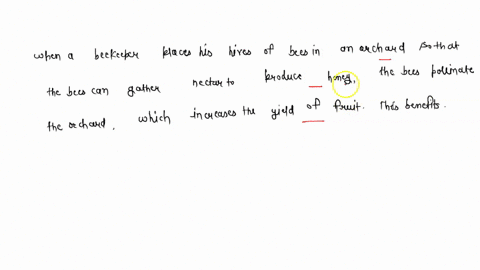 when a beekeeper places his hives of bees in an orchard so that
the bees can gather nectar to produce honey, the bees pollinate
the orchard, which increases the yield of fruit. This benefits